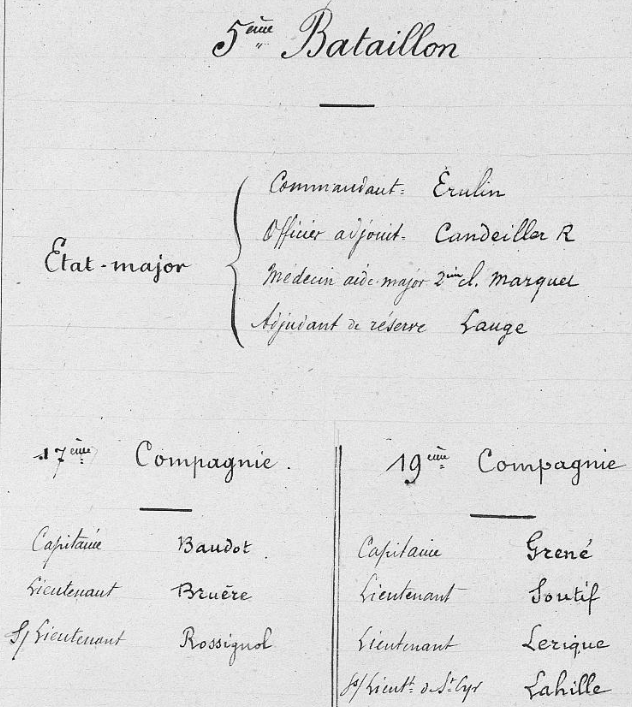 5ème Bataillon
Etat-major
Commandant: Érulin
Officier adjoint. Candeiller R
Médecin aide-major 2ème cl. Marquet
Adjudant de réserve Lauge
17ème Compagnie.
Capitaine Baudot.
Lieutenant Bruère
S/Lieutenant Rossignol
19ème Compagnie
Capitaine Grené
Lieutenant Soutif
Lieutenant Lerique
S/Lieutt. de St Cyr Lahille